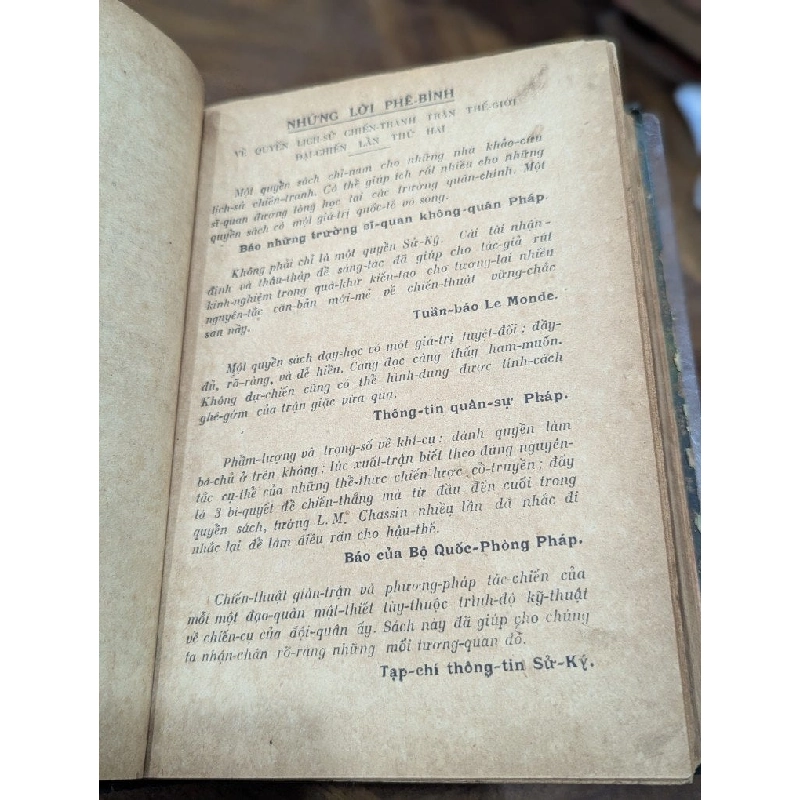 NHỮNG LỜI PHÊ-BÌNH
VỀ QUYỂN LỊCH-SỬ CHIẾN-TRANH TRẬN THẾ-GIỚI
ĐẠI-CHIẾN LẦN THỨ HAI
Một quyển sách chỉ-nam cho những nhà khảo-cứu
lịch-sử chiến-tranh. Có thể giúp ích rất nhiều cho những
sĩ-quan đương tòng học tại các trường quân-chính. Một
quyển sách có một giá-trị quốc-tế vô song.
Báo những trường sĩ-quan không-quân Pháp.
Không phải chỉ là một quyển Sử-Ký. Cái tài nhận-
định và thâu-thập để sáng-tác đã giúp cho tác-giả rút
kinh-nghiệm trong quá-khứ kiến-tạo cho tương-lai nhiều
nguyên-tắc căn-bản mới-mẻ về chiến-thuật vững-chắc
sau này.
Tuần-báo Le Monde.
Một quyển sách dạy-học có một giá-trị tuyệt-đối ; đầy-
đủ, rõ-ràng, và dễ hiểu. Càng đọc càng thấy ham-muốn.
Không dự-chiến cũng có thể hình-dung được tính-cách
ghê-gớm của trận giặc vừa qua.
Thông-tin quân-sự Pháp.
Phẩm-lượng và trọng-số về khí-cụ ; dành quyền làm
bá-chủ ở trên không ; lúc xuất-trận biết theo đúng nguyên-
tắc cụ-thể của những thể-thức chiến-lược cổ-truyền ; đấy
là 3 bí-quyết để chiến-thắng mà từ đầu đến cuối trong
quyển sách, tướng L.M. Chassin nhiều lần đã nhắc đi
nhắc lại để làm điều răn cho hậu-thế.
Báo của Bộ Quốc-Phòng Pháp.
Chiến-thuật giàn-trận và phương-pháp tác-chiến của
mỗi một đạo-quân mật-thiết tùy-thuộc trình-độ kỹ-thuật
về chiến-cụ của đội-quân ấy. Sách này đã giúp cho chúng
ta nhận-chân rõ-ràng những mối tương-quan đó.
Tạp-chí thông-tin Sử-Ký.